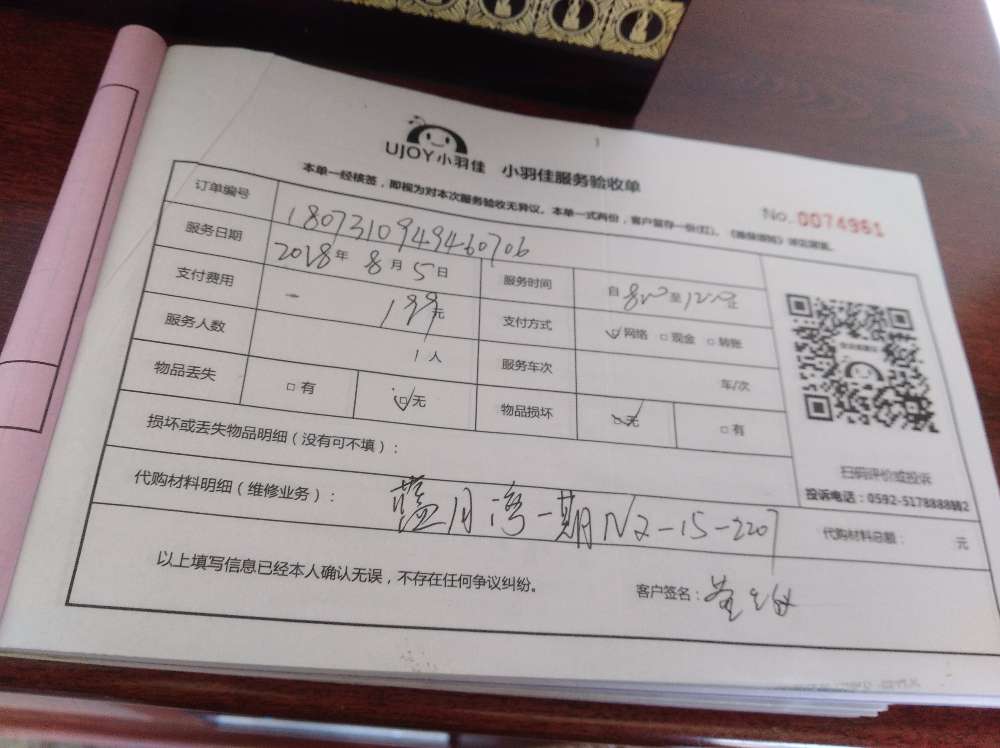 UJOY小羽佳 小羽佳服务验收单
本单一经核签，即视为对本次服务验收无异议。本单一式两份，客户留存一份(红)。
No. 0074961
订单编号 180731094946070б
服务日期 2018年 8月 5日 服务时间 自 8:00 至 12:00 止
支付费用 199元 支付方式 网络 现金 转账
服务人数 1人 服务车次 车/次
物品丢失 有 无 物品损坏 无 有
损坏或丢失物品明细（没有可不填）：
扫码评价或投诉
投诉电话：0592-5178888转2
代购材料明细（维修业务）： 蓝月湾一期N2-15-2207 代购材料总额： 元
以上填写信息已经本人确认无误，不存在任何争议纠纷。 客户签名：